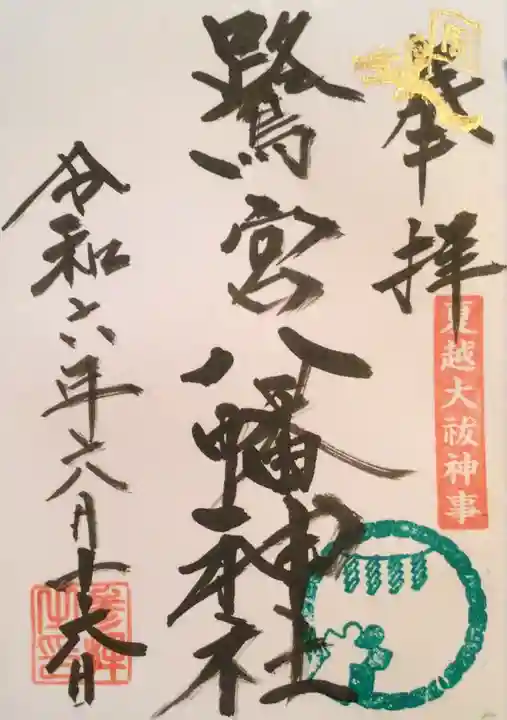 奉拝
夏越大祓神事
鷺宮八幡神社
令和六年六月十六日
参拝之印